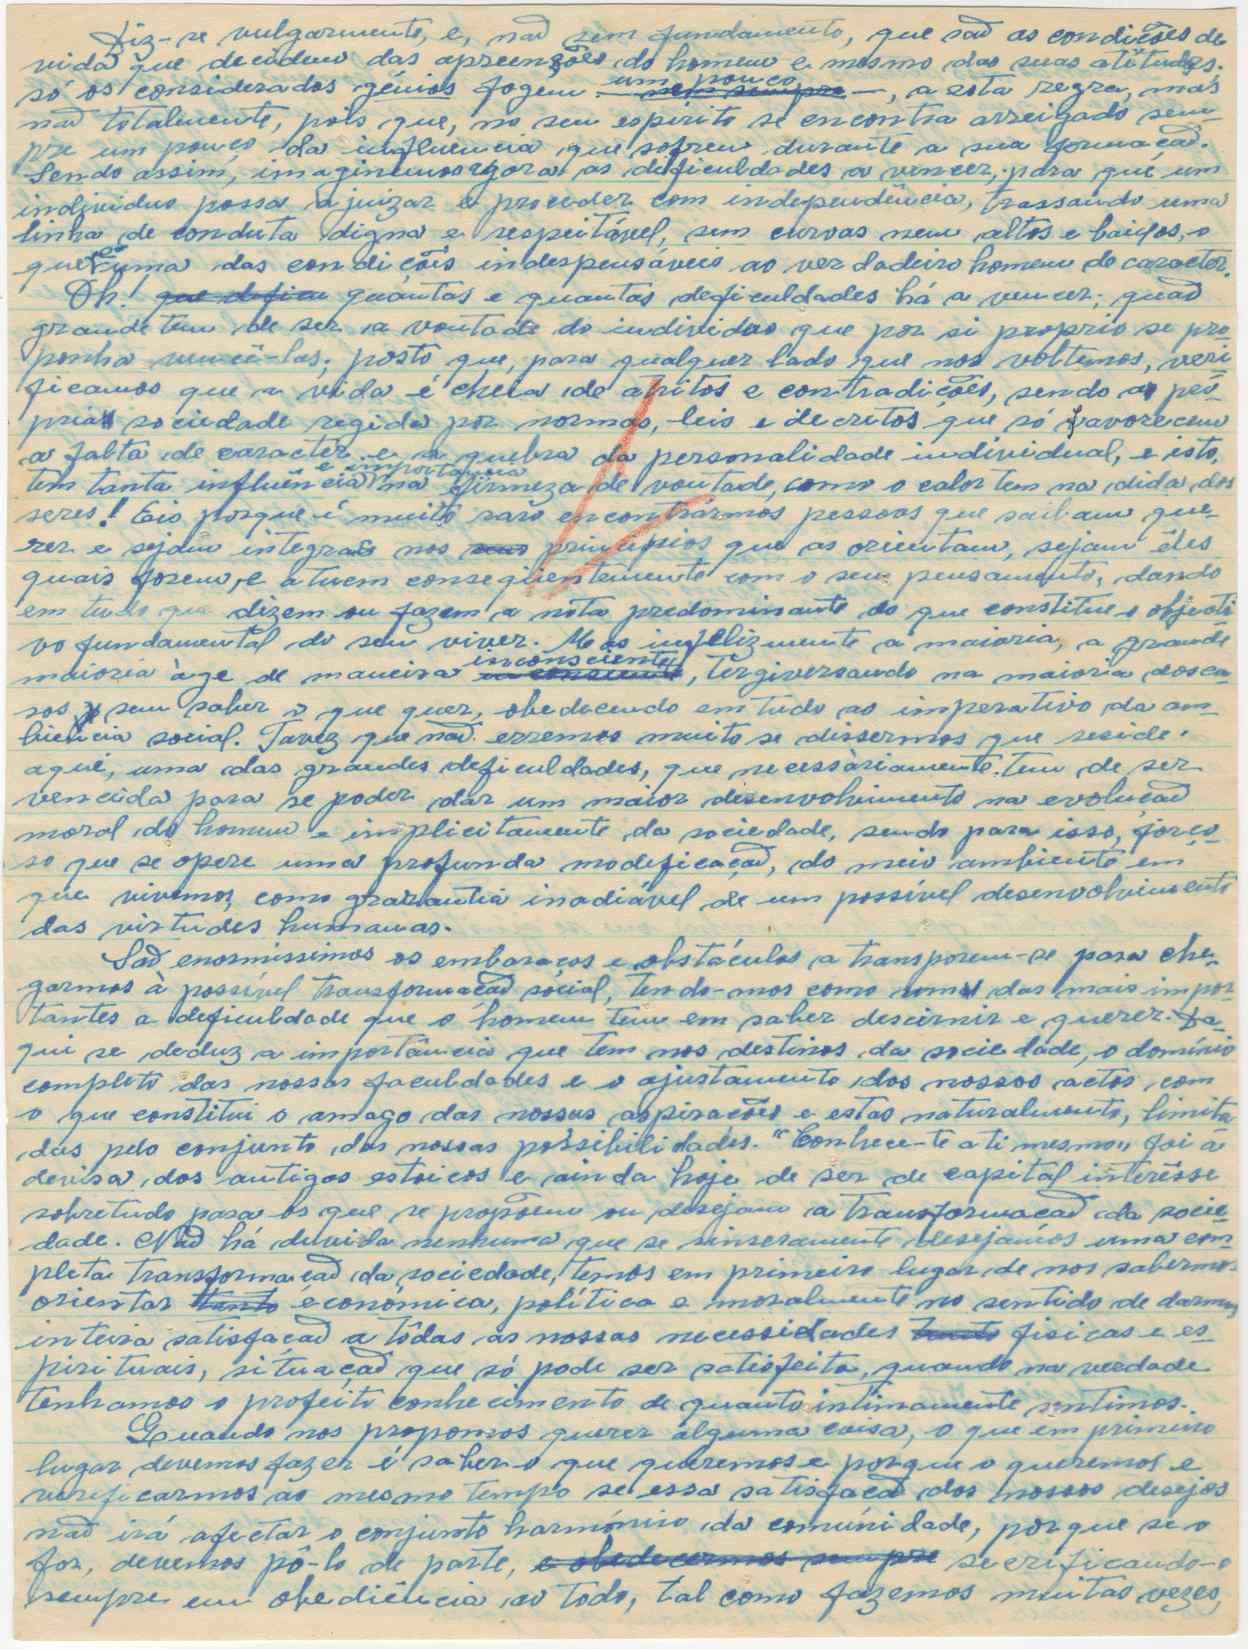 Diz-se vulgarmente, e, não sem fundamento, que são as condições de
vida que decidem das apreenções do homem e mesmo das suas atitudes.
só os considerados génios fogem um pouco nem sempre —, a esta regra, mas
não totalmente, pois que, no seu espirito se encontra arreigado sem-
pre um pouco da influência que sofreu durante a sua formação.
Sendo assim, imaginemos agora as deficuldades a vencer, para que um
individuo possa ajuizar e proceder com independência, trassando uma
linha de conduta digna e respeitável, sem curvas nem altos e baixos, o
que é uma das condições indespensáveis ao verdadeiro homem de caracter.
Oh! que deficu quántas e quantas deficuldades há a vencer; quão
grande tem de ser a vontade do individuo que por si proprio se pro
ponha vencê-las; posto que, para qualquer lado que nos voltemos, veri
ficamos que a vida é cheia de atritos e contradições, sendo a pró-
pria sociedade regida por normas, leis e decretos que só favorecem
a falta de caracter e a quebra da personalidade individual, e isto,
tem tanta influência e importância na firmeza de vontade, como o calor tem na dida dos
seres! Eis porque é muito raro encontrármos pessoas que saibam que-
rer e sejam integras nos seus principios que as orientam, sejam êles
quais forem, e atuem conseqüentemente com o seu pensamento, dando
em tudo que dizem ou fazem a nota predominante do que constitue o objecti
vo fundamental do seu viver. Mas infelizmente a maioria, a grande
maioria àge de maneira inconsciente, tergiversando na maioria dos ca-
sos sem saber o que quer, obedecendo em tudo ao imperativo da am-
biência social. Tavez que não erremos muito se dissermos que reside.
aqui, uma das grandes deficuldades, que necessàriamente tem de ser
vencida para se poder dar um maior desenvolvimento na evolução
moral do homem e implicitamente da sociedade, sendo para isso, forço-
so que se opere uma profunda modeficação, do meio ambiente em
que vivemos, como garantia inadiável de um possível desenvolvimento
das virtudes humanas.
São enormissimos os embaraços e obstáculos a transporem-se para che-
garmos à possível transformação social, tendo-mos como uma das mais impor
tantes a deficuldade que o homem tem em saber descirnir e querer. Da-
qui se deduz a importância que tem nos destinos da sociedade, o domínio
completo das nossas faculdades e o ajustamento dos nossos actos com
o que constitui o amago das nossas aspirações e estas naturalmente, limita
das pelo conjunto das nossas possibilidades. "Conhece-te a ti mesmo,, foi a
devisa dos antigos estoicos e ainda hoje de ser de capital interêsse
sobretudo para os que se propõem ou desejam a transformação da socie-
dade. Não há duvida nenhuma que se sinseramente desejámos uma com-
pleta transformação da sociedade, temos em primeiro lugar de nos sabermos
orientar tanto económica, política e moralmente no sentido de darmos
inteira satisfação a tôdas as nossas necessidades tanto fisicas e es-
pirituais, situação que só pode ser satisfeita, quando na verdade
tenhamos o profeito conhecimento de quanto intimamente sentimos.
Quando nos propomos querer alguma coisa, o que em primeiro
lugar devemos fazer é saber o que queremos e porque o queremos e
verificarmos ao mesmo tempo se essa satisfação dos nossos desejos
não irá afectar o conjunto harmónico da comúnidade, porque se o
for, devemos pô-lo de parte, e obedecermos sempre secrificando-o
sempre em obediência ao todo, tal como fazemos muitas vezes,